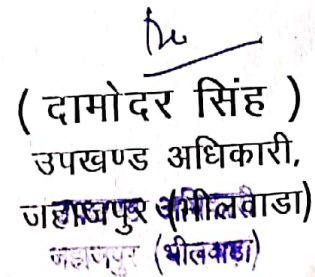 ( दामोदर सिंह )
उपखण्ड अधिकारी,
जहाजपुर (भीलवाडा)
जहाजपुर (भीलवाडा)